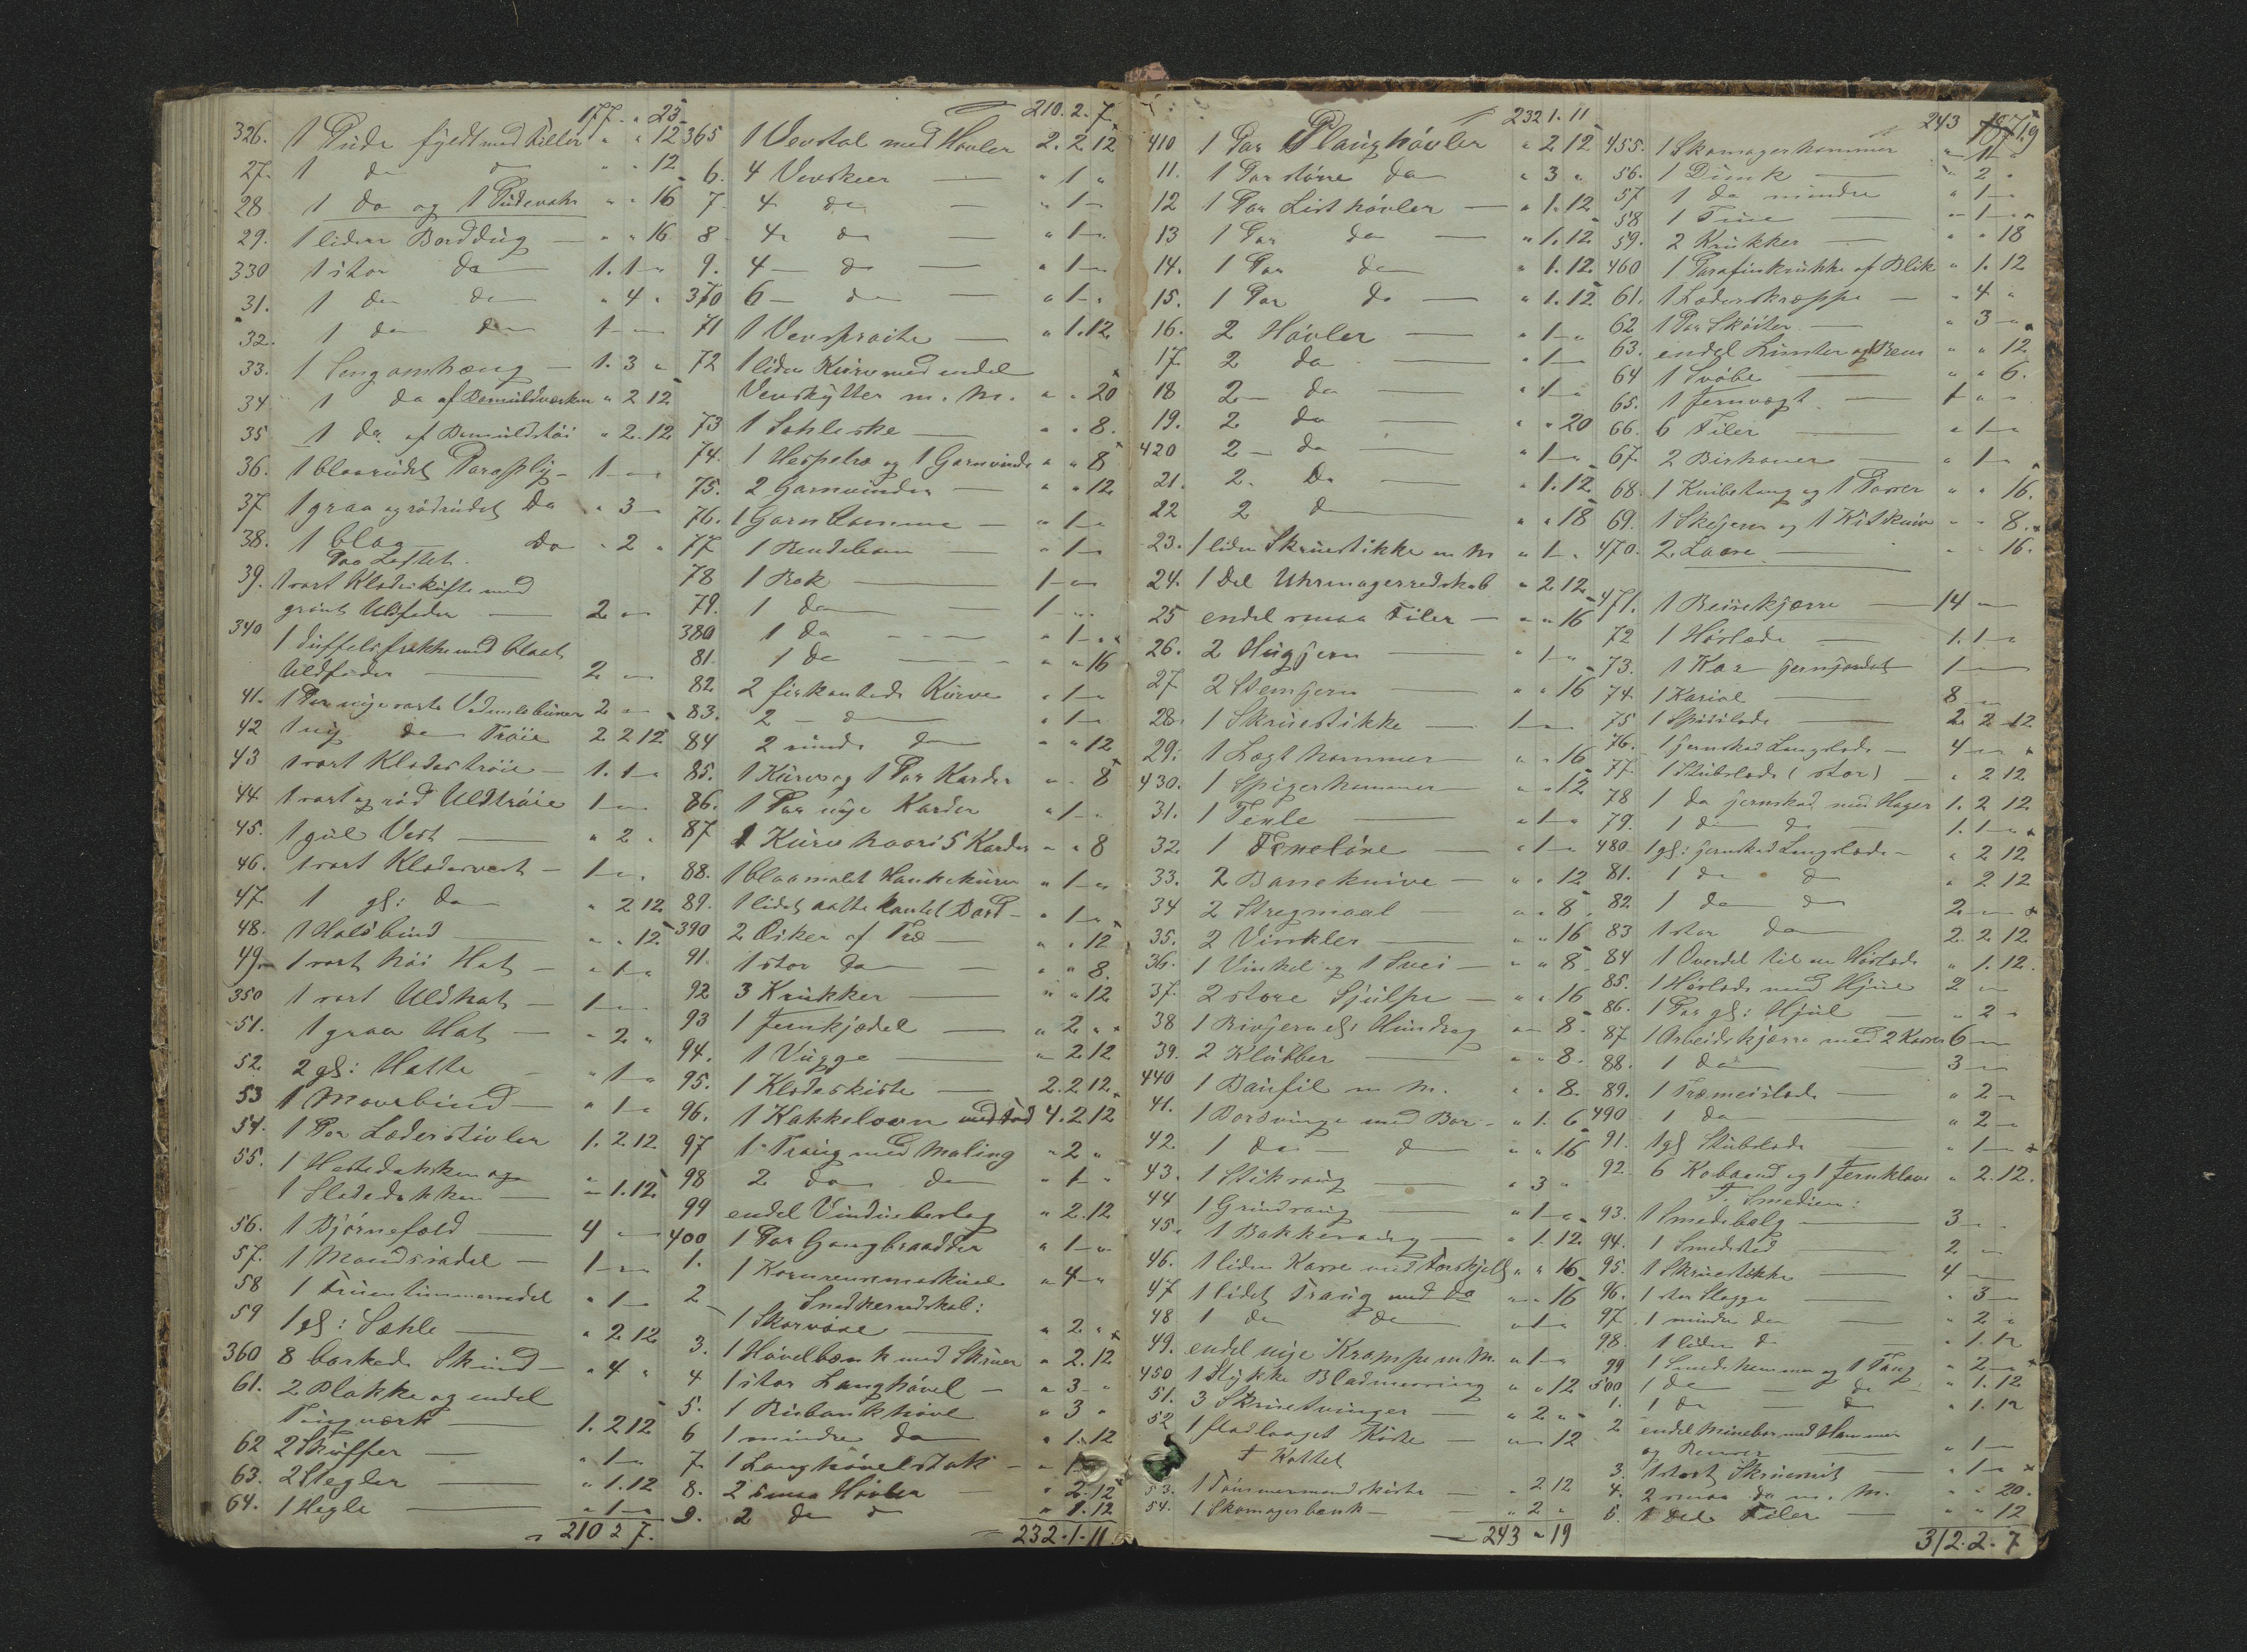 177. " 23
326. 1 Pude fyldt med Filler " " 12
27. 1 do do " " 12
28 1 do og 1 Pudevahr " " 16
29. 1 liden Borddug — " " 16
330 1 stor do 1. 1 "
31. 1 do do " 4 "
32. 1 do do 1 — "
33. 1 Sengomhæng — 1. 3 "
34 1 do af Bomuldverken " 2 12
35 1 do. af Bomuldstøi " 2. 12
36. 1 blaarudet Paraply — 1 — "
37 1 graa og rødrudet do " 3 —
38. 1 blaa do " 2 "
Paa Loftet.
39. 1 sort Klædeskufte med
grønt Uldfoder — 2 —
340 1 Duffelsfrakke med blaat
Uldfoder — 2 —
41. 1 Par nye sorte Vadmelsbuxer 2 —
42 1 ny do Trøie 2 2 12
43 1 sort Klædestrøie — 1. 1 "
44 1 sort og rød Uldtrøie 1 —
45. 1 gul Vest — " 2 "
46. 1 sort Klædesvest — 1 — "
47. 1 gl: do " 2 12
48. 1 Halsbind — " " 12
49. 1 sort høi Hat — " 1 "
350 1 sort Uldhat — 1 —
51. 1 graa Hat — " 2 "
52. 2 gl: Hatte — " 1 "
53 1 Mavebind — " 1 "
54. 1 Par Læderstøvler 1. 2 12
55. 1 Hestedækken og
1 Slededækken — " 1. 12
56. 1 Bjørnefæld — 4 —
57. 1 Mandssadel — 1 — "
58 1 Fruentimmersadel " 1 —
59 1 gl: Sæhle — " 2 12
360 8 barkede Skind — " 4 "
61. 2 Blokke og endel
Tougværk — 1. 2 12
62 2 Skuffer — " 1 —
63. 2 Hegler — " 1. 12
64. 1 Hegle — " 1 —
210 2 7.
210. 2. 7
365 1 Vevstol med Hovler 2. 2 12
6. 4 Vevskeer — " 1 "
7 4 do — " 1 —
8 4 do — " 1 —
9. 4 — do — " 1 —
370 6 — do — " 1 "
71 1 Vevsproite — " 1. 12
72 1 liden Kurv med endel
Vevskytter m. M. " " 20
73 1 Sahleske — " " 8.
74. 1 Hespetræ og 1 Garnvinde " " 8
75. 2 Garnvinder — " " 12
76. 1 Garnkrone — " 1 "
77 1 Rendebom — " 1 —
78 1 Rok — 1 —
79. 1 do — 1 —
380 1 do — " 1 "
81. 1 do — " " 16
82 2 firkantede Kurve " 1 —
83. 2 — do " 1 —
84 2 runde do " " 12
85. 1 Kurv og 1 Par Karder " " 8
86. 1 Par nye Karder " 1 —
87 1 Kurv hvori 5 Karder " " 8
88. 1 blaamalet Hankekurv " 1 "
89. 1 lidet aattekantet Bord — " 1 "
390 2 Æsker af Træ — " " 12
91. 1 stor do — " " 8.
92 3 Krukker " " 12
93 1 Jernkjedel — " 2 "
94. 1 Vugge — " 2 12
95. 1 Klædeskiste — 2. 2 12
96. 1 Kakkelovn med Fod 4. 2 12
97 1 Traug med Maling " 2 "
98 2 do do " 1 "
99 endel Vinduesbeslag " 2. 12
400 1 Par Gangbraadder " 1 "
1. 1 Kornrensemaskine " 4 "
Snedkerredskab:
2 1 Skarvøxe — " 2 "
3. 1 Høvelbænk med Skruer " 2. 12
4 1 stor Langhøvel — " 3 "
5. 1 Rubankhøvl " 3 "
6 1 mindre do " 1. 12
7. 1 Langhøvelstok — " 1
8. 2 smaa Høvler — " 2. 12
9. 2 do do " 1. 12
232. 1. 11
232 1. 11
410 1 Par Plaughøvler " 2 12
11. 1 Par større do " 3 "
12 1 Par Listhøvler — " 1. 12
13 1 Par do — " 1. 12
14. 1 Par do " 1. 12
15. 1 Par do — " 1. 12
16. 2 Høvler — " 1 "
17. 2 do — " 1 —
18 2 — do — " 1 "
19. 2 do — " " 20
420 2 — do — " 1 "
21. 2. do — " 1. 12
22 2 do — " " 18
23. 1 liden Skruestikke m M " 1 "
24. 1 Del Uhrmagerredskab " 2 12
25 endel smaa Filer — " " 16
26. 2 Hugjern — " 1 "
27 2 Stemjern — " " 16
28. 1 Skruestikke — 1 —
29. 1 Lægthammer — " " 16
430. 1 Spigerhammer — " " 12
31. 1 Texle — " 1 "
32. 1 — " 1 "
33. 2 Baneknive — " " 12
34 2 Stregmaal — " " 8
35. 2 Vinkler — " " 16
36. 1 Vinkel og 1 Svei — " " 8
37. 2 store Hjulpe — " " 16
38 1 Rivjern els Hundrag " " 8
39. 2 Klubber — " " 8.
440 1 Baufil m M. " " 8
41. 1 Borsvinge med Bor — " 1. 6
42. 1 do — do " " 16
43. 1 Stiksaug — " 3 "
44 1 Grindsaug — " 1 "
45. 1 Bakkesaug — " 1. 12
46. 1 liden Kasse med Forskjell " " 16
47 1 lidet Traug med do " " 16
48 1 do do " 1 "
49. endel nye Krampe m M. " 1 "
450 1 Stykke Bladmessing " " 12
51. 3 Skruetvinger — " 2 "
52 1 fladlaaget Kiste — " " 12
I Kottet
53. 1 Tømmermandskiste — " 2 12
54. 1 Skomagerbænk — " 2 "
243 " 19
243 " 19
455. 1 Skomagerhammer " 1 "
56. 1 Dunk — " 2 "
57 1 do mindre " 1 —
58 1 Tine — " 1 —
59. 2 Krukker — " " 18
460 1 Parafinkrukke af Blik " 1. 12
61. 1 Læderskræppe — " 4 "
62 1 Par Skøiter — " 3 "
63. endel Lunter og Rem " " 12
64 1 Svøbe — " " 6.
65. 1 Jernvægt — 1 " "
66. 6 Filer — " 1 "
67. 2 Birhaver — " 1 —
68. 1 Knibetang og 1 Passer " " 16.
69. 1 Skejern og 1 Kitkniv " " 8.
470. 2 Laase — " " 16.
471. 1 Reisekjærre — 14 —
72 1 Høslæde — 1. 1 "
73. 1 Kar jernjordet 1 —
74. 1 Kariol — 8 —
75 1 Spidsslæde — 2. 2 12
76. 1 jernskod Langslæde — 4 —
77. 1 Stubslæde (stor) — " 2 12
78 1 do jernskod med Hager 1. 2 12
79. 1 do do — 1. 1 "
480. 1 gl: jernskod Langslæde — " 2 12
81. 1 do do " 2 12
82 1 do do 2 —
83 1 stor do 2. 2 12
84 1 Overdel til en Høslæde " 1. 12.
85. 1 Høslæde med Hjul 2 —
86. 1 Par gl: Hjul — " 2 "
87 1 Arbeidskjærre med 2 Kasser 6 —
88. 1 do 3 —
89. 1 Træmeislæde — " 2 "
490 1 do " 2 "
91. 1 gl Stubslæde — " 1 —
92. 6 Kobaand og 1 Jernklave " 2. 12.
I Smedien:
93. 1 Smedebælg — 3 —
94. 1 Smedsted — 2 —
95. 1 Skruestikke — 4 —
96. 1 stor Slægge — " 3 —
97. 1 mindre do " 2 "
98. 1 liden do — " 1. 12
99 1 Smedehammer og 1 Tang " 2 —
500 1 do do " 1. 12
1. 1 do do " 1. 12
2 endel Minebor med Hammer
og Renser — " 1 —
3. 1 stort Skruesnit — " 1 —
4. 2 smaa do m. M. " " 20.
5. 1 Del Filer — " " 12
312. 2. 7